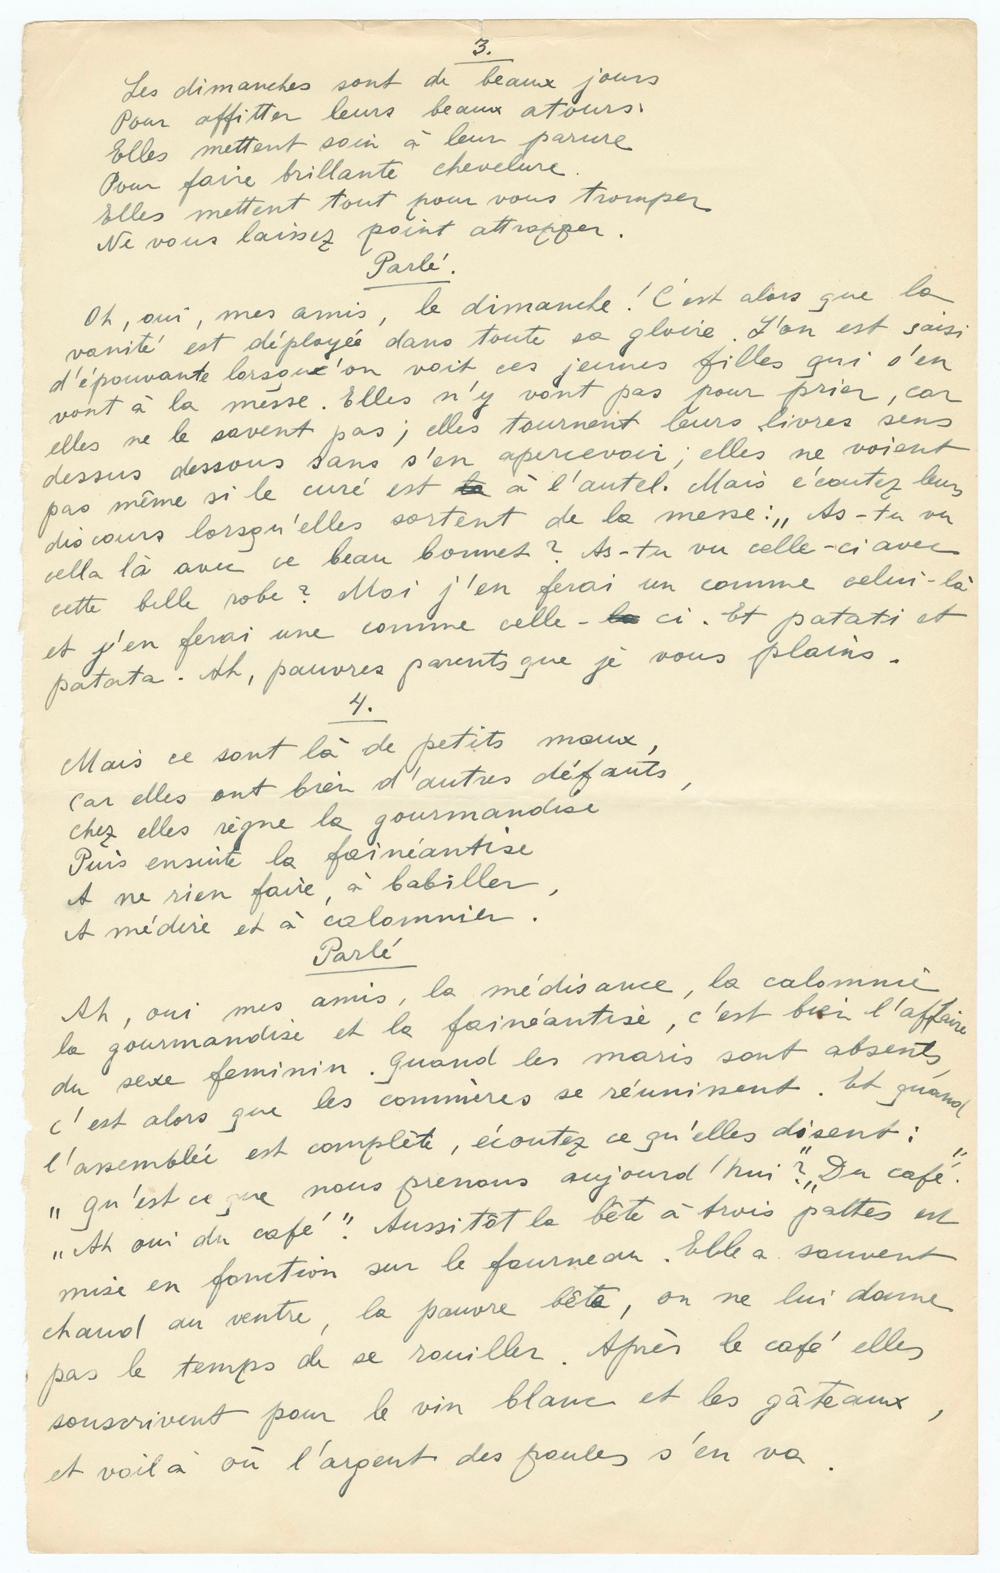 3.
Les dimanches sont de beaux jours
Pour affitter leurs beaux atours.
Elles mettent soin à leur parure
Pour faire brillante chevelure.
Elles mettent tout pour vous tromper
Ne vous laissez point attrapper.
Parlé.
Oh, oui, mes amis, le dimanche! C'est alors que la
vanité est déployée dans toute sa gloire. L'on est saisi
d'épouvante lorsque l'on voit ces jeunes filles qui s'en
vont à la messe. Elles n'y vont pas pour prier, car
elles ne le savent pas; elles tournent leurs livres sens
dessus dessous sans s'en apercevoir; elles ne voient
pas même si le curé est la à l'autel. Mais écoutez leurs
discours lorsqu'elles sortent de la messe: „ As-tu vu
cella là avec ce beau bonnet? As-tu vu celle-ci avec
cette belle robe? Moi j'en ferai un comme celui-là
et j'en ferai une comme celle-la ci. Et patati et
patata. Ah, pauvres parents que je vous plains.
4.
Mais ce sont là de petits maux,
Car elles ont bien d'autres défauts,
Chez elles règne la gourmandise
Puis ensuite la fainéantise
A ne rien faire, à babiller,
A médire et à calomnier.
Parlé
Ah, oui mes amis, la médisance, la calomnie
la gourmandise et la fainéantise, c'est bien l'affaire
du sexe feminin. Quand les maris sont absents
c'est alors que les commères se réunissent. Et quand
l'assemblée est complète, écoutez ce qu'elles disent:
„ Qu'est ce que nous prenons aujourd'hui?" „Du café".
„Ah oui du café". Aussitôt la bête à trois pattes est
mise en fonction sur le fourneau. Elle a souvent
chaud au ventre, la pauvre bête, on ne lui donne
pas le temps de se rouiller. Après le café elles
souscrivent pour le vin blanc et les gâteaux,
et voilà où l'argent des poules s'en va.